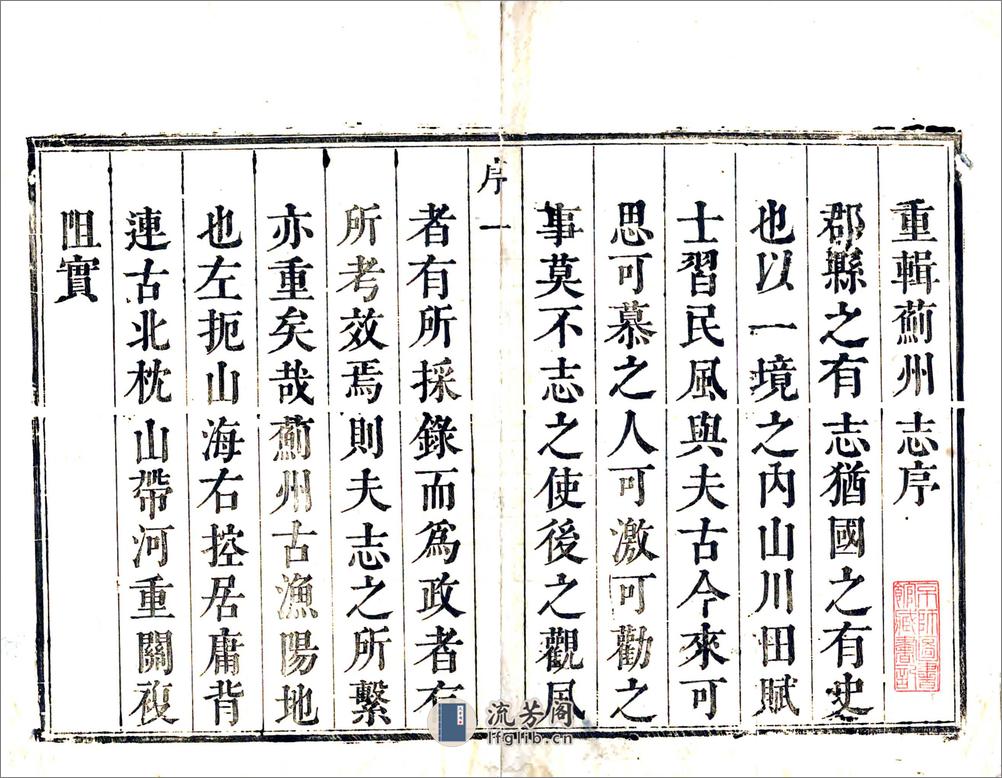 重輯薊州志序
郡縣之有志猶國之有史
也以一境之內山川田賦
士習民風與夫古今來可
思可慕之人可激可勸之
事莫不志之使後之觀風
序一
者有所採錄而為政者有
所考效焉則夫志之所繫
亦重矣哉薊州古漁陽地
也左扼山海右控居庸背
連古北枕山帶河重關複
阻實
京師圖書
館藏書記
流芳阁
lfglib.cn